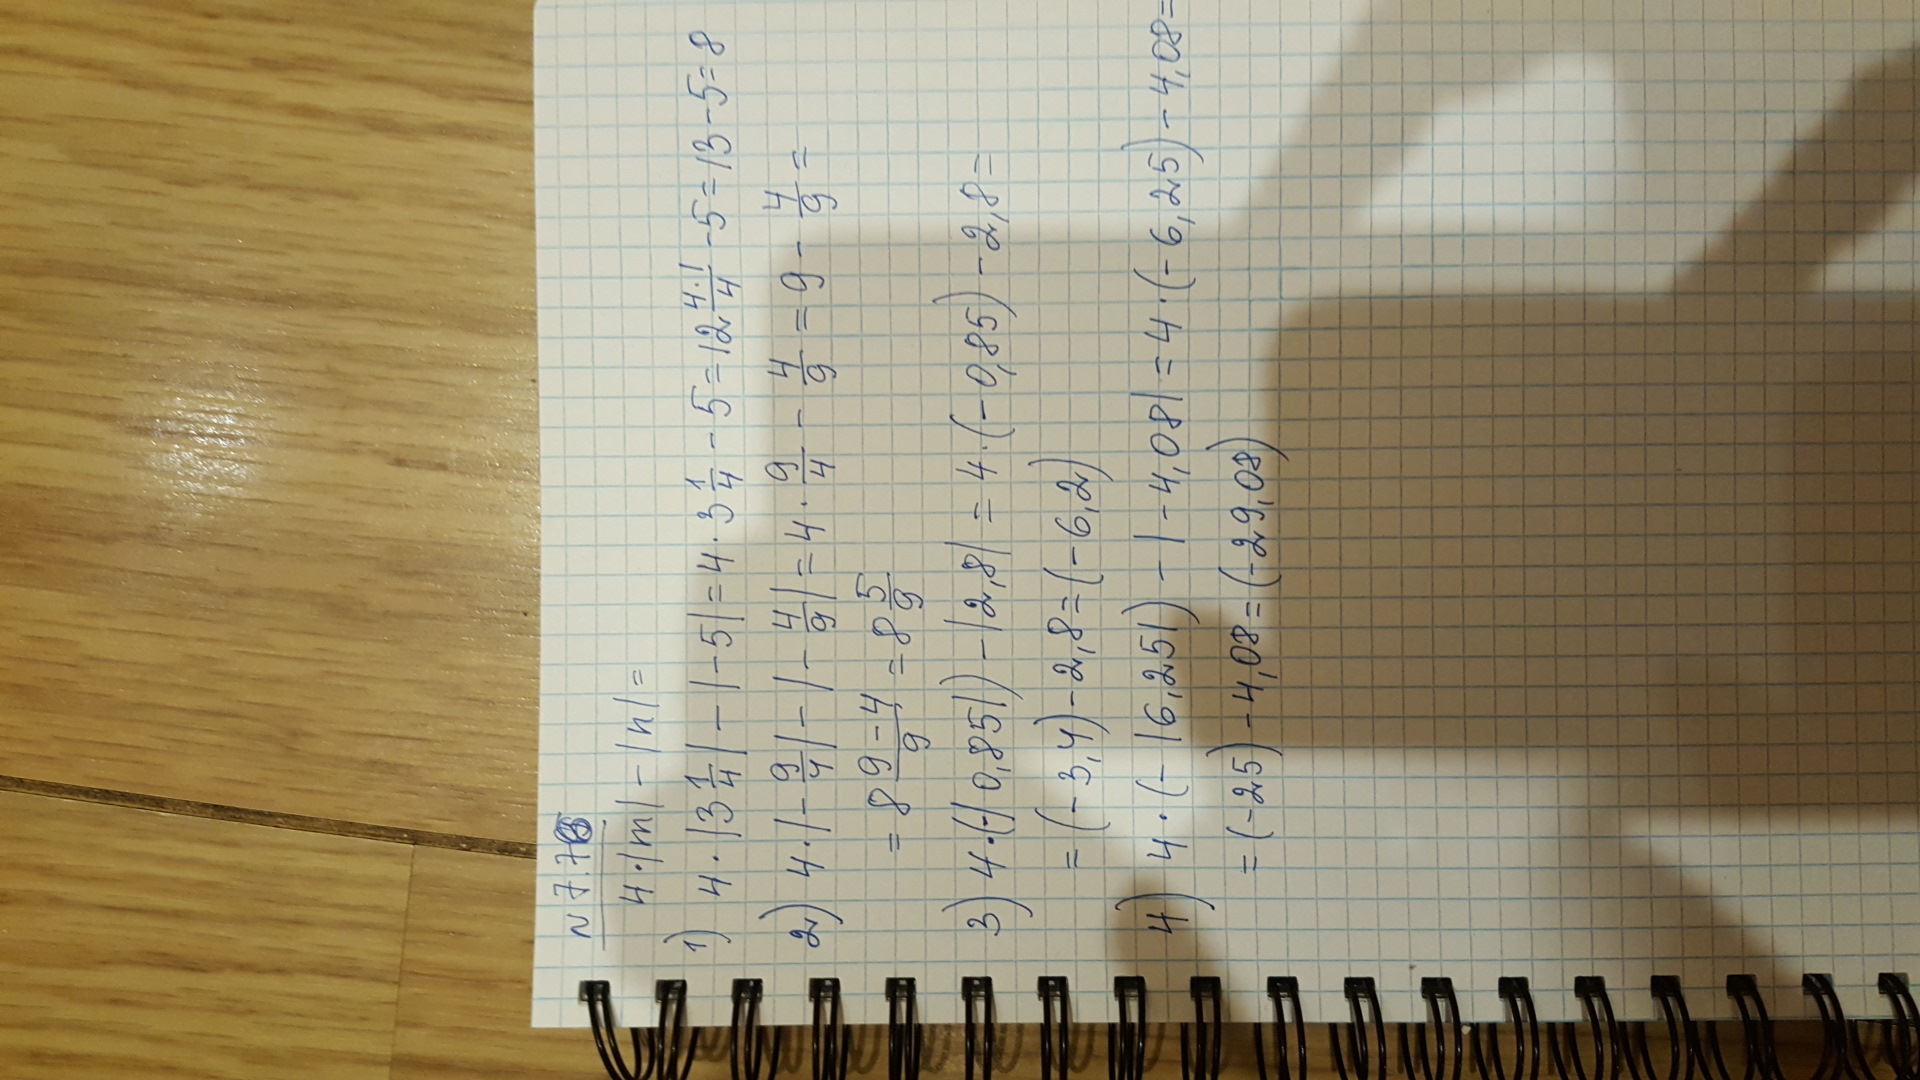 N 7.78
4·|m| - |n| =
1) 4·|3 1/4| - |-5| = 4·3 1/4 - 5 = 12 4·1/4 - 5 = 13 - 5 = 8
2) 4·|-9/4| - |-4/9| = 4·9/4 - 4/9 = 9 - 4/9 =
= 8 9-4/9 = 8 5/9
3) 4·(-|0,85|) - |2,8| = 4·(-0,85) - 2,8 =
= (-3,4) - 2,8 = (-6,2)
4) 4·(-|6,25|) - |-4,08| = 4·(-6,25) - 4,08 =
= (-25) - 4,08 = (-29,08)